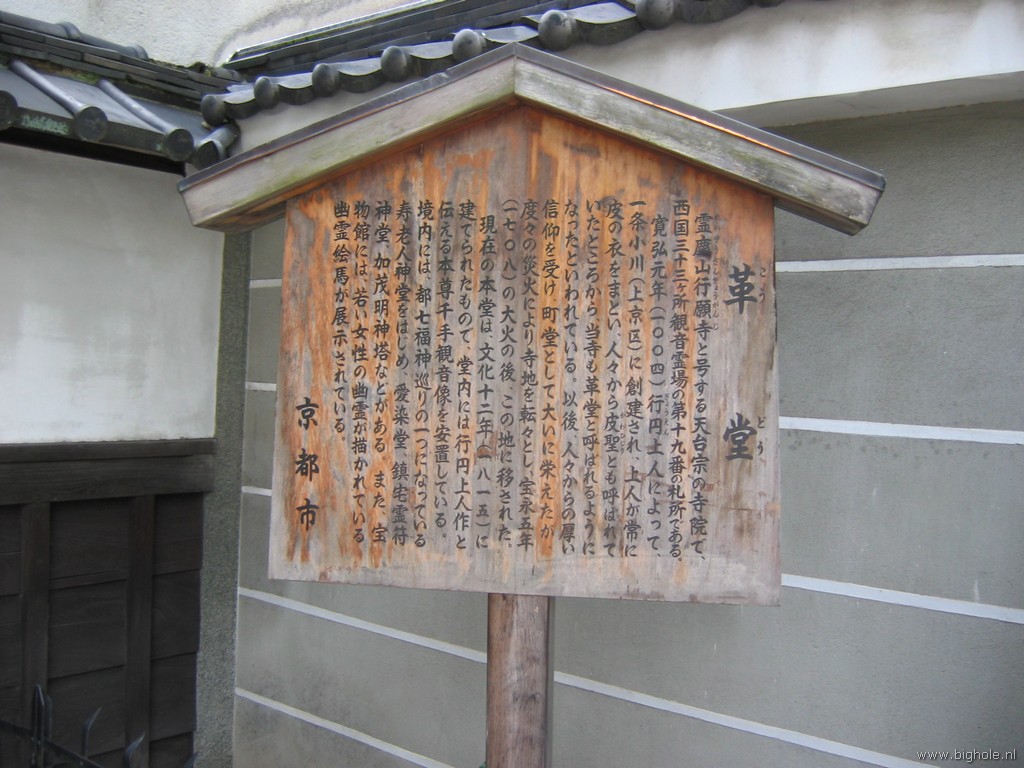 革堂
こうどう
霊麀山行願寺と号する天台宗の寺院で、
西国三十三ヶ所観音霊場の第十九番の札所である。
寛弘元年（一〇〇四）行円上人によって、
一条小川（上京区）に創建され、上人が常に
皮の衣をまとい、人々から皮聖とも呼ばれて
いたところから、当寺も革堂と呼ばれるように
なったといわれている。以後、人々からの厚い
信仰を受け、町堂として大いに栄えたが、
度々の災火により寺地を転々とし、宝永五年
（一七〇八）の大火の後、この地に移された。
現在の本堂は、文化十二年（一八一五）に
建てられたもので、堂内には行円上人作と
伝える本尊千手観音像を安置している。
境内には、都七福神巡りの一つになっている
寿老人神堂をはじめ、愛染堂、鎮宅霊符
神堂、加茂明神塔などがある。また、宝
物館には、若い女性の幽霊が描かれている
幽霊絵馬が展示されている。
京都市
www.bighole.nl